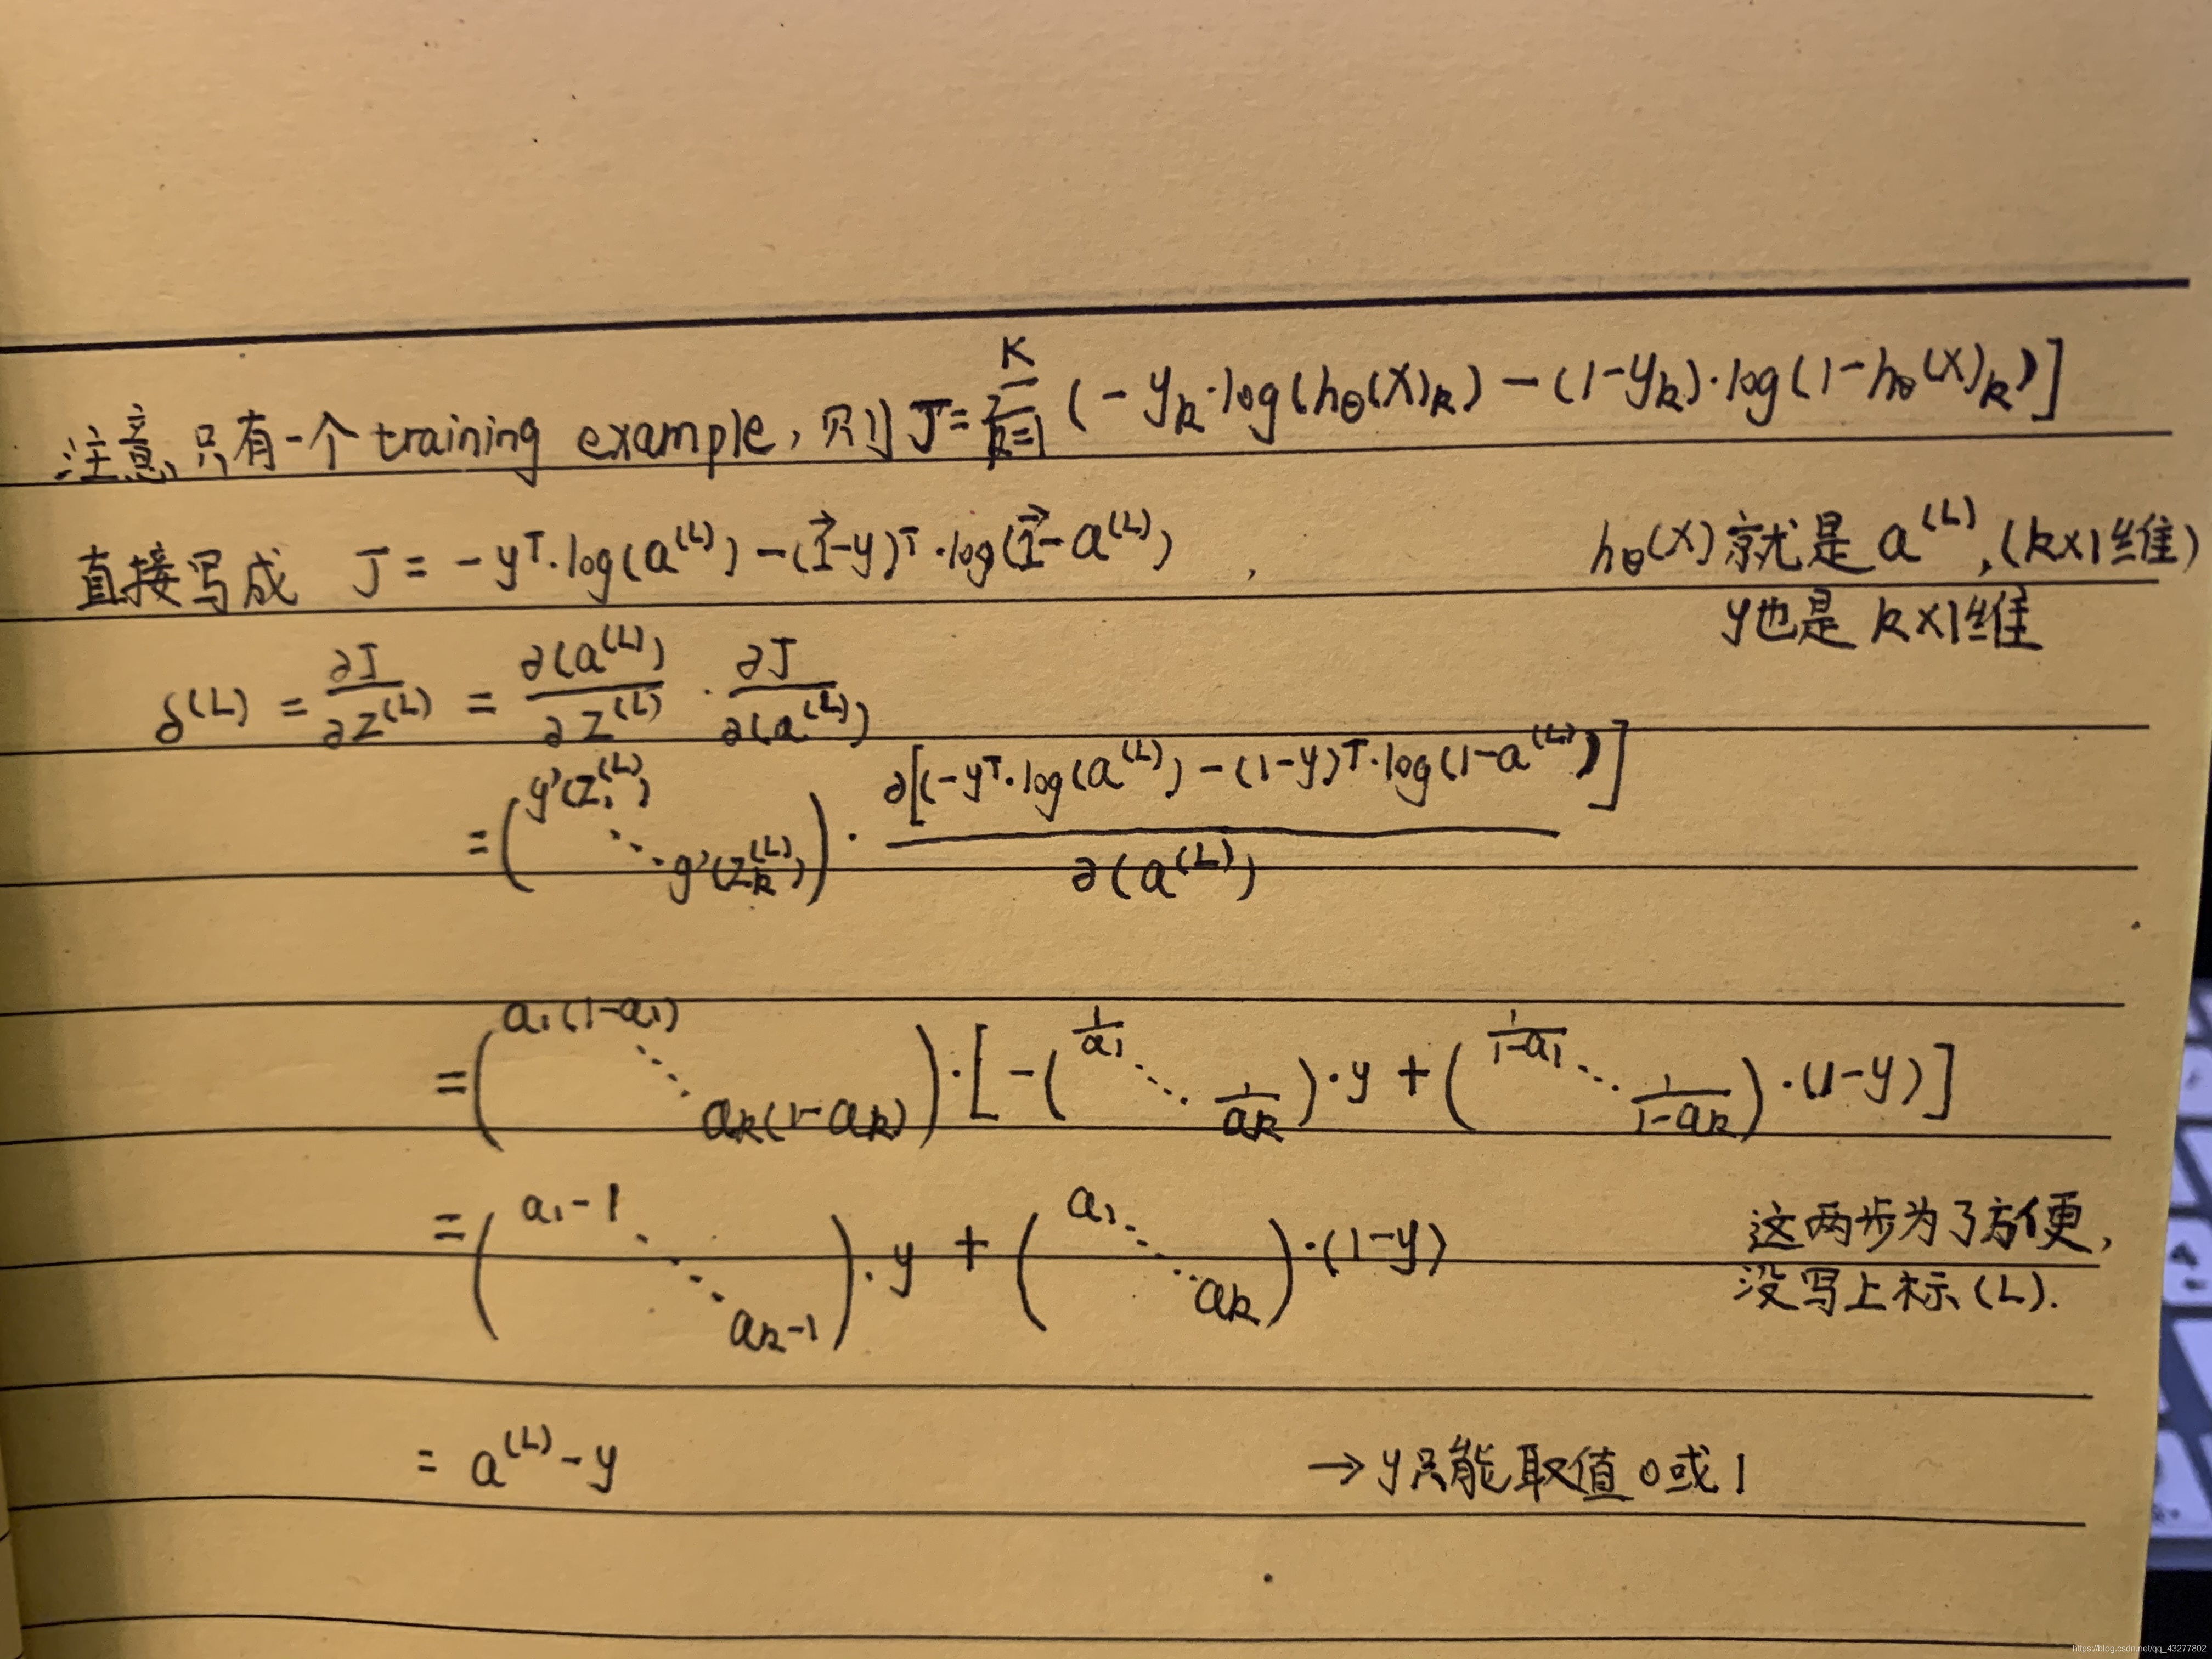 注意只有一个 training example, 则 J = \sum_{k=1}^{K} (-y_k·log(h_θ(x)_k) - (1-y_k)·log(1-h_θ(x)_k)]
直接写成 J = -y^T·log(a^{(L)}) - (\vec{1}-y)^T·log(\vec{1}-a^{(L)}) , h_θ(x) 就是 a^{(L)}, (k×1维)
y也是 k×1维
δ^{(L)} = \frac{∂J}{∂z^{(L)}} = \frac{∂(a^{(L)})}{∂z^{(L)}} · \frac{∂J}{∂(a^{(L)})}
= (g'(z_1^{(L)}) ⋱ g'(z_k^{(L)})) · \frac{∂[(-y^T·log(a^{(L)}) - (1-y)^T·log(1-a^{(L)}))]}{∂(a^{(L)})}
= (a_1(1-a_1) ⋱ a_k(1-a_k)) · [-(\frac{1}{a_1} ⋱ \frac{1}{a_k})·y + (\frac{1}{1-a_1} ⋱ \frac{1}{1-a_k})·(1-y)]
= (a_1-1 ⋱ a_k-1)·y + (a_1 ⋱ a_k)·(1-y) 这两步为了方便,
没写上标(L).
= a^{(L)}-y → y只能取值0或1
https://blog.csdn.net/qq_43277802